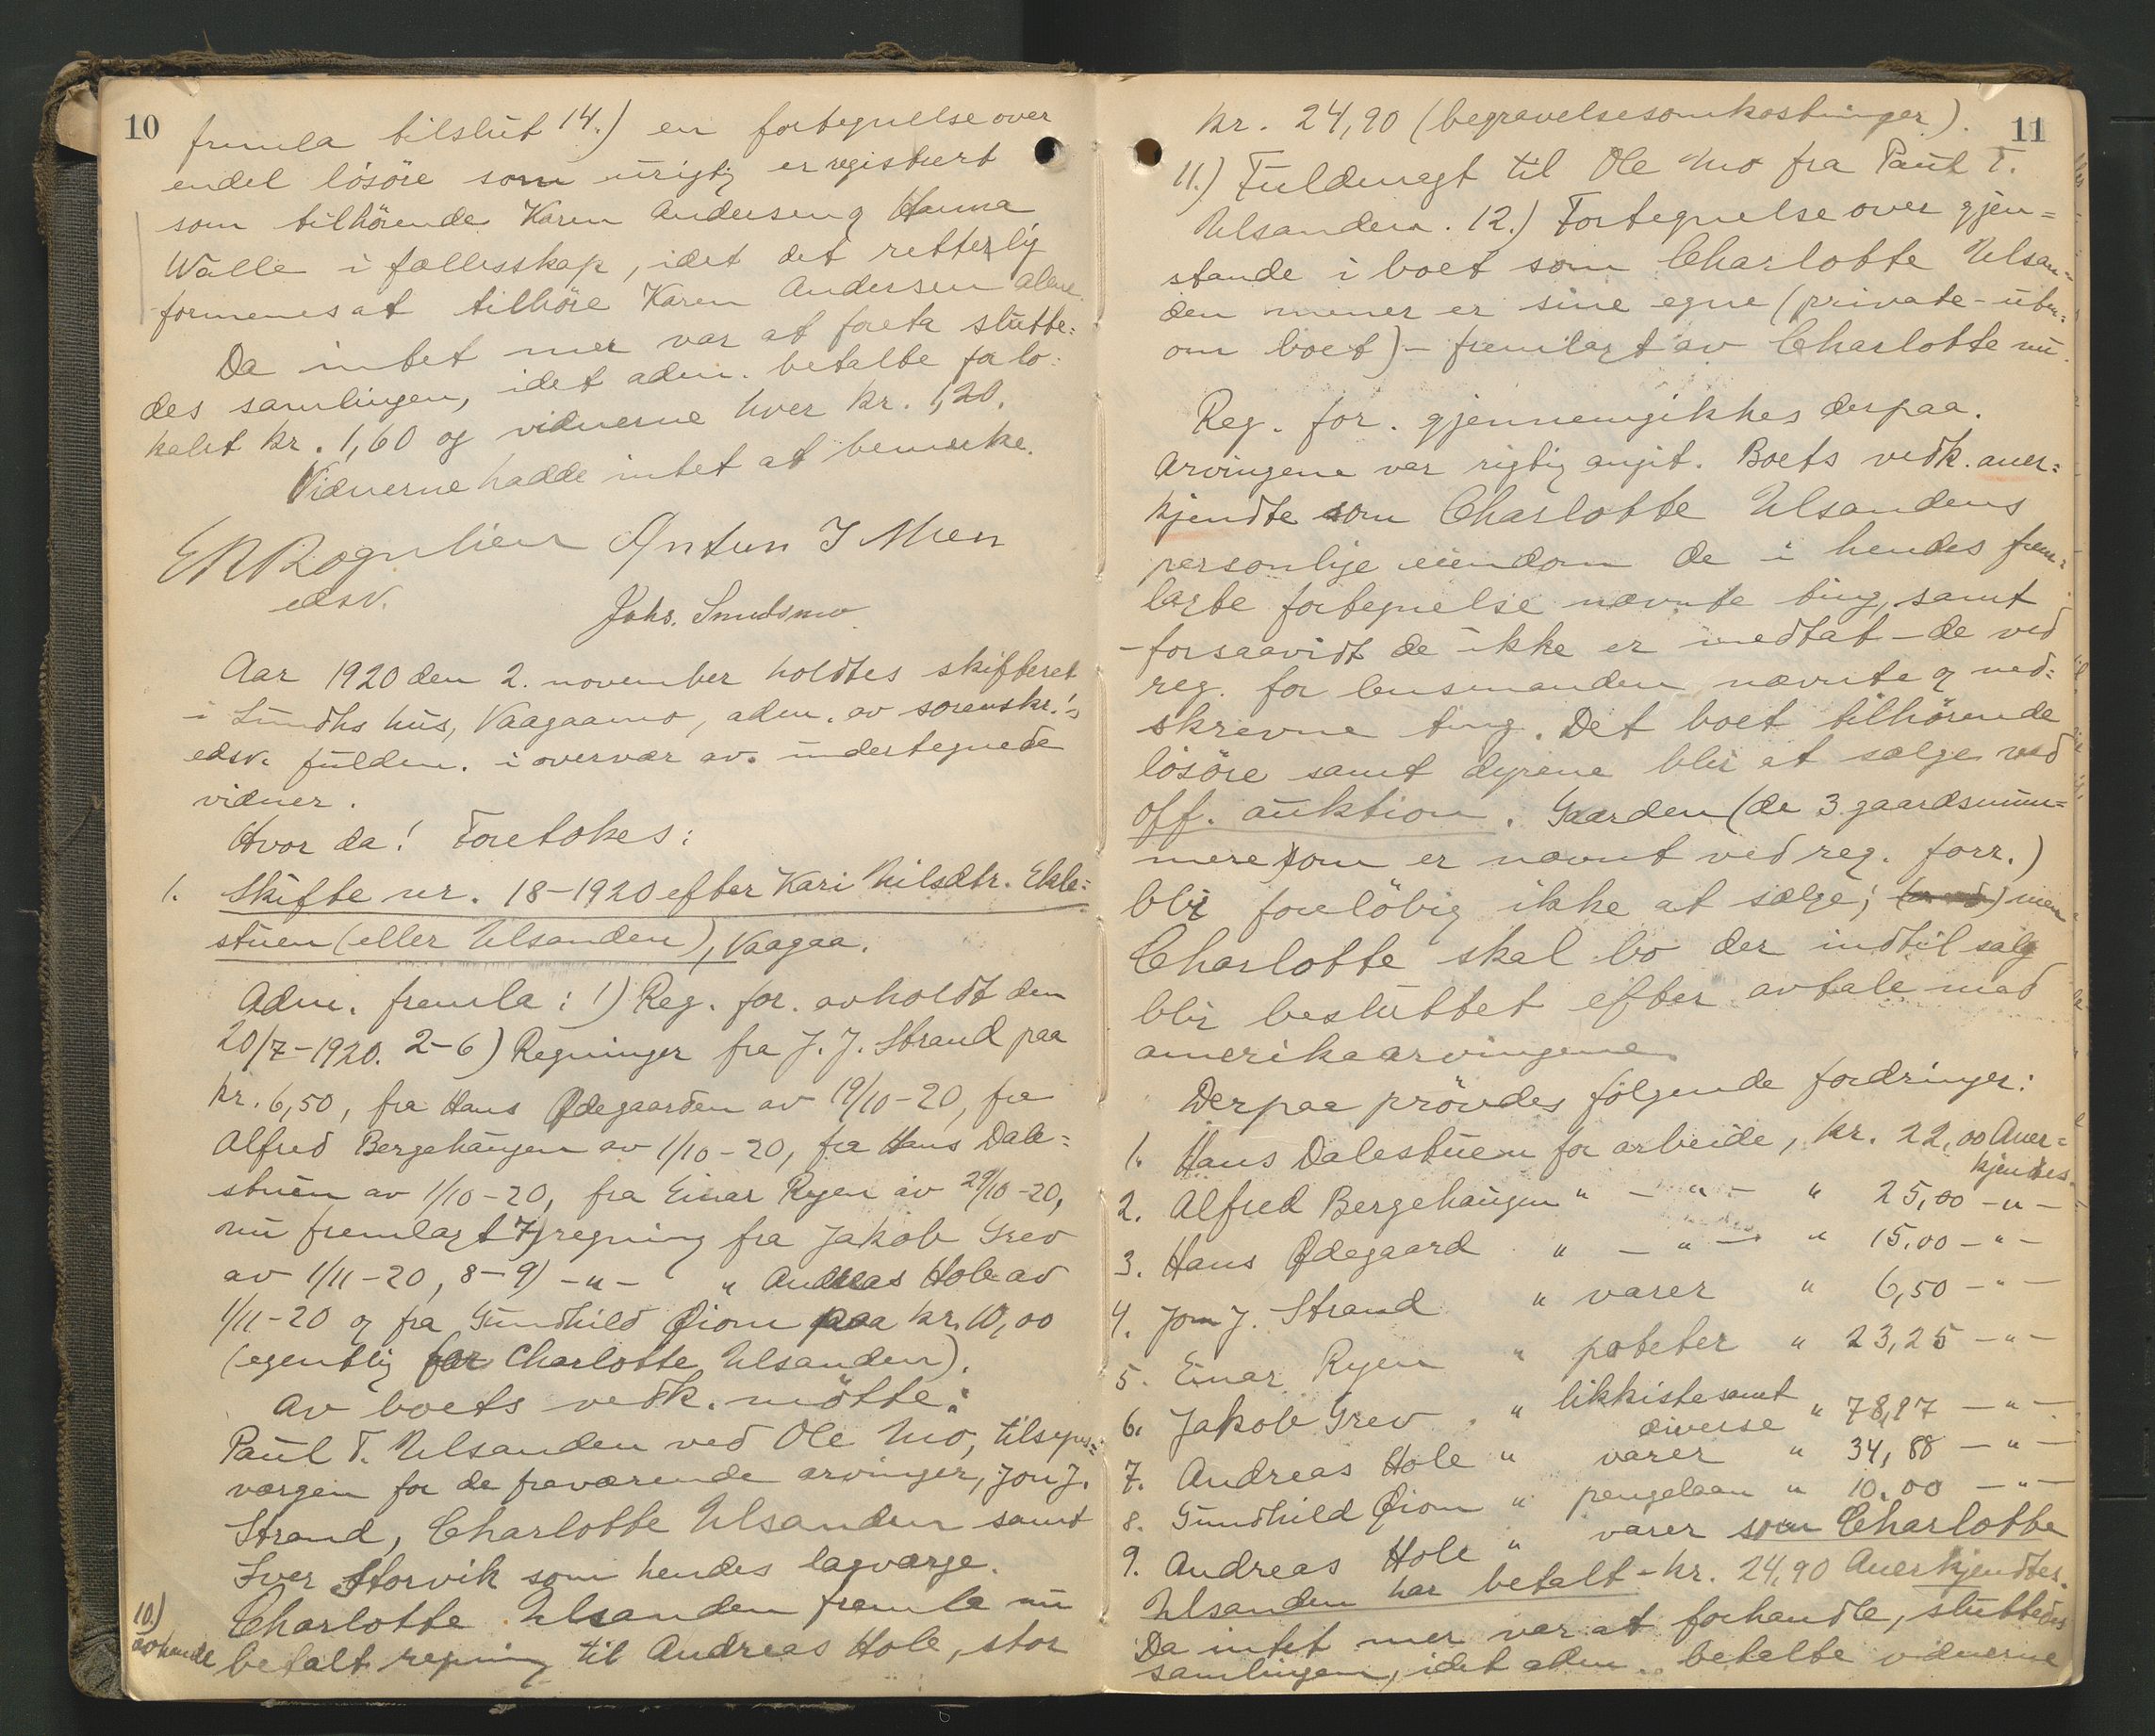 10
fremla tilslut 14.) en fortegnelse over
endel lösöre som urigtig er registrert
som tilhörende Karen Andersen og Hanna
Wålle i fællesskap, idet det rettelig
formenes at tilhöre Karen Andersen alene.
Da intet mer var at foreta slutte=
des samlingen, idet adm. betalte for lo=
kalet kr. 1,60 og vidnerne hver kr. 1,20.
Vidnerne hadde intet at bemerke.
E N Rognlien Antun I Moen
edsv.
Johs. Smedsmo
Aar 1920 den 2. november holdtes skifteret
i Sundhs hus, Vaagaamo, adm. av sorenskr.'s
edsv. fuldm. i overvær av undertegnede
vidner.
Hvor da! Foretokes:
1. Skifte nr. 18-1920 efter Kari Nilsdtr. Ekle=
stuen (eller Ulsanden), Vaagaa.
Adm. fremla: 1) Reg. for. avholdt den
20/7-1920. 2-6) Regninger fra J. J. Strand paa
kr. 6,50, fra Hans Ødegaarden av 19/10-20, fra
Alfred Bergehaugen av 1/10-20, fra Hans Dale=
stuen av 1/10-20, fra Einar Ryen av 29/10-20,
nu fremlagt 7) regning fra Jakob Grev
av 1/11-20, 8-9) -"- " Andreas Hole av
1/11-20 og fra Gundhild Øiom paa kr. 10,00
(egentlig for Charlotte Ulsanden).
Av boets vedk. mötte:
Paul T. Ulsanden ved Ole Mo, tilsyns=
vergen for de fraværende arvinger, Jon J.
Strand, Charlotte Ulsanden samt
Iver Storvik som hendes lagverge.
Charlotte Ulsanden fremla nu
10.) av hende betalt regning til Andreas Hole, stor
11
kr. 24,90 (begravelsesomkostninger).
11.) Fuldmagt til Ole Mo fra Paul T.
Ulsanden. 12.) Fortegnelse over gjen=
stande i boet som Charlotte Ulsan=
den mener er sine egne (private - uten=
om boet) - fremlagt av Charlotte nu.
Reg. for. gjennemgikkes derpaa.
Arvingene var rigtig angit. Boets vedk. aner=
kjendte som Charlotte Ulsandens
personlige eiendom de i hendes frem=
lagte fortegnelse nævnte ting, samt
- forsaavidt de ikke er medtat - de ved
reg. for lensmanden nævnte og ned=
skrevne ting. Det boet tilhörende
lösöre samt dyrene blir at sælge ved
off. auktion. Gaarden (de 3 gaardsnum=
mere som er nævnt ved reg. forr.)
blir foreløbig ikke at sælge; men
Charlotte skal bo der indtil salg
blir besluttet efter avtale med
amerikaarvingene.
Derpaa prövdes følgende fordringer:
1. Hans Dalestuen for arbeide, kr. 22,00 Aner=
kjendtes.
2. Alfred Bergehaugen " - " - " 25,00 -"-
3. Hans Ødegaard " - " - " 15,00 -"-
4. Jon J. Strand " varer " 6,50 -"-
5. Einar Ryen " poteter " 23,25 -"-
6. Jakob Grev " likkiste samt
diverse " 78,97 -"-
7. Andreas Hole " varer " 34,88 -"-
8. Gundhild Øiom " pengelaan " 10,00 -"-
9. Andreas Hole " varer som Charlotte
Ulsanden har betalt - kr. 24,90 Anerkjendtes.
Da intet mer var at forhandle, sluttedes
samlingen, idet adm. betalte vidnerne